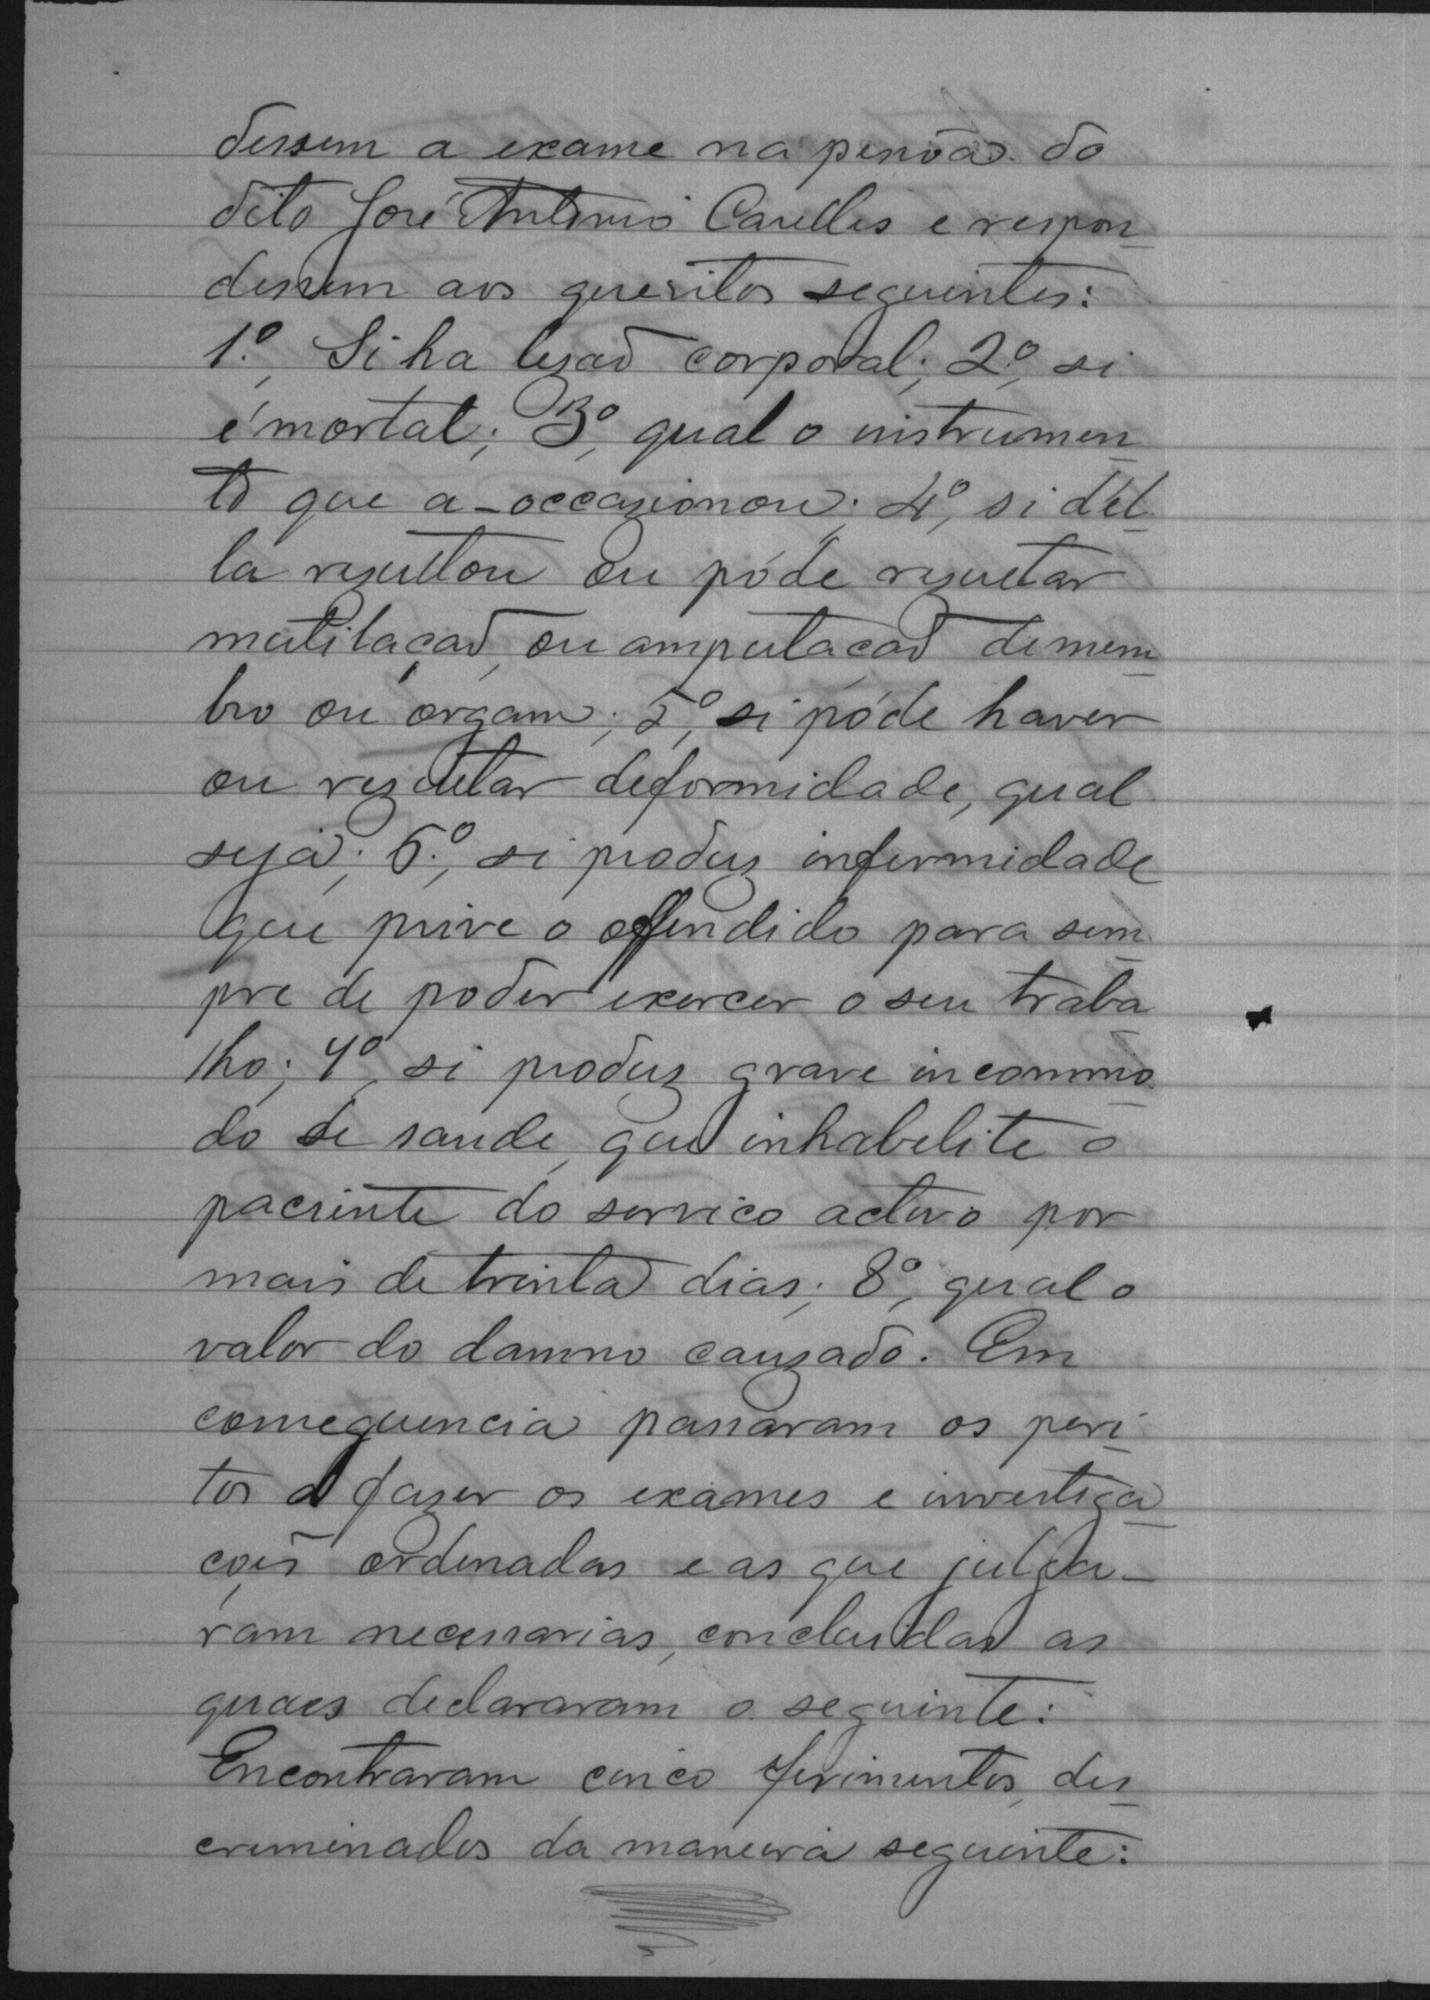 dessem a exame na pessôa do
dito José Antonio Carelles e respon_
dessem aos quesitos seguintes:
1º, Si ha lezaõ corporal; 2º, si
é mortal; 3º, qual o instrumen_
to que a_occazionou; 4º, si d'el_
la rezultou ou póde rezultar
mutilaçaõ, ou amputaçaõ de mem_
bro ou orgam; 5º, si póde haver
ou rezultar deformidade, qual
seja; 6º, si produz infermidade
que prive o offendido para sem_
pre de poder exercer o seu traba_
lho; 7º, si produz grave incommo_
do de saude, que inhabelite o
paciente do serviço activo por
mais de trinta dias; 8º, qual o
valor do damno cauzado. Em
consequencia passaram os peri_
tos a fazer os exames e investiga_
coẽs ordenadas e as que julga_
ram necessarias, concluidas as
quaes declararam o seguinte:
Encontraram cinco ferimentos, des_
criminados da maneira seguinte: